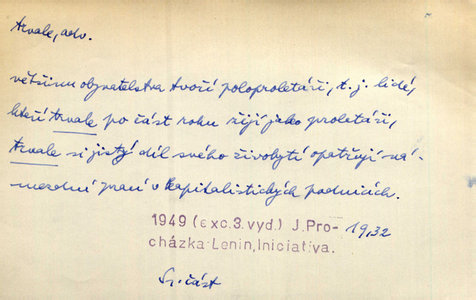 trvale, adv.
většinu obyvatelstva tvoří poloproletáři, t. j. lidé,
kteří trvale po část roku žijí jako proletáři,
trvale si jistý díl svého živobytí opatřují ná-
mezdní prací v kapitalistických podnicích.
1949 (exc.3.vyd.) J.Pro- 19,32
cházka:Lenin,Iniciativa.